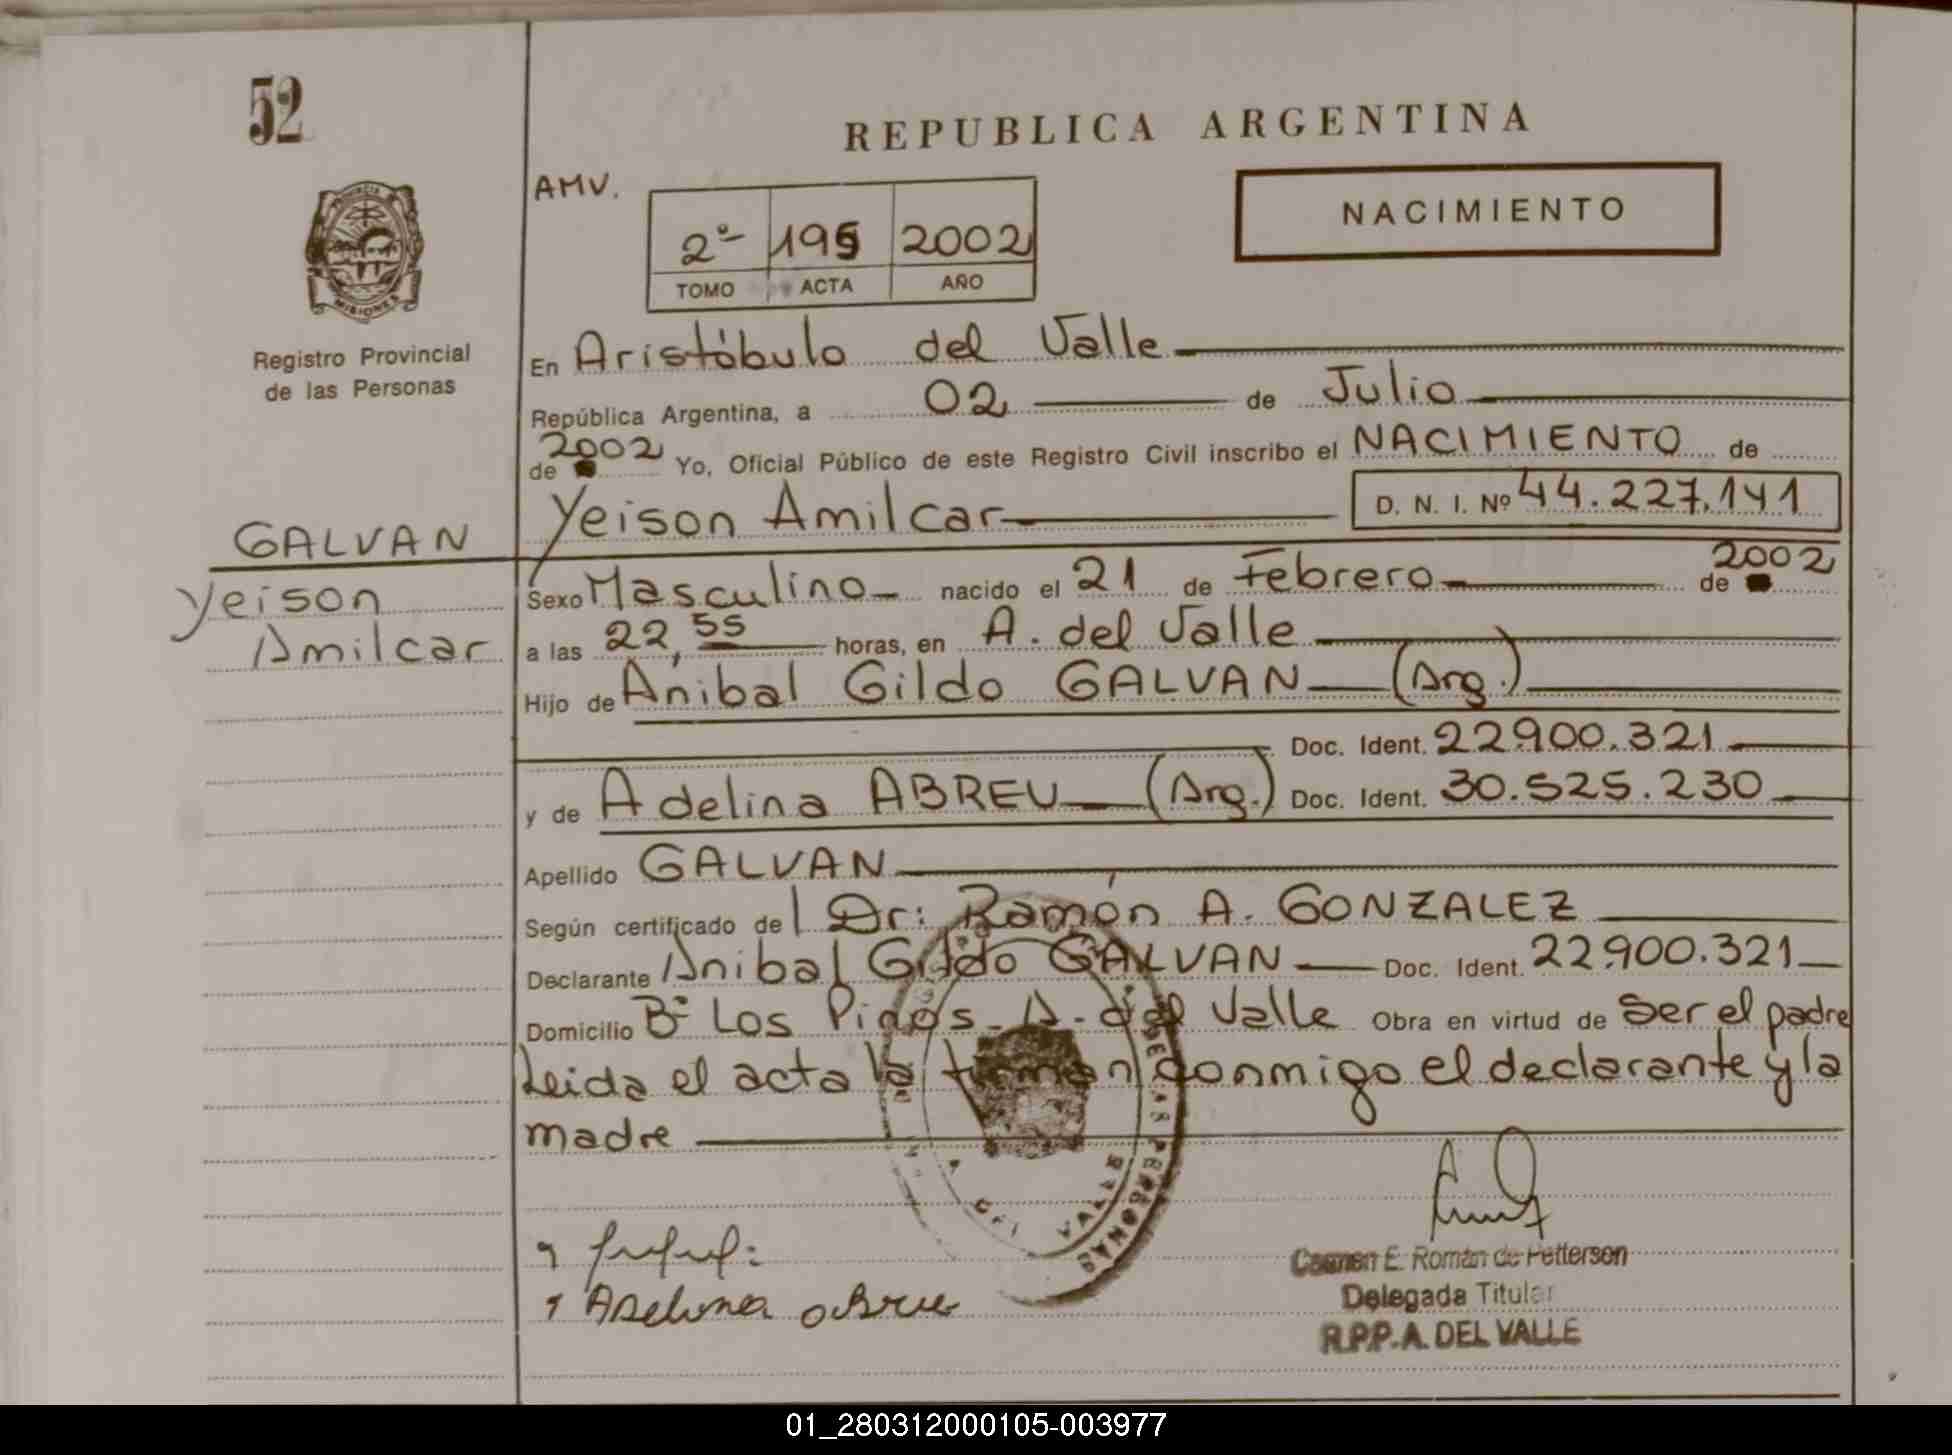 52
REPUBLICA ARGENTINA
AMV.
NACIMIENTO
2º 195 2002
TOMO ACTA AÑO
MISIONES
Registro Provincial
de las Personas
En Aristóbulo del Valle
República Argentina, a 02 de Julio
de 2002 Yo, Oficial Público de este Registro Civil inscribo el NACIMIENTO de
Yeison Amilcar D. N. I. Nº 44.227.141
GALVAN
Yeison
Amilcar
Sexo Masculino nacido el 21 de Febrero de 2002
a las 22,55 horas, en A. del Valle
Hijo de Anibal Gildo GALVAN (Arg.)
Doc. Ident. 22.900.321
y de Adelina ABREU (Arg.) Doc. Ident. 30.525.230
Apellido GALVAN
Según certificado del Dr: Ramón A. GONZALEZ
Declarante Anibal Gildo GALVAN Doc. Ident. 22.900.321
Domicilio Bº Los Pinos - A. del Valle Obra en virtud de ser el padre
Leida el acta la firman conmigo el declarante y la
madre
DE LAS PERSONAS
DEL VALLE
Adelina abreu
Carmen E. Román de Petterson
Delegada Titular
R.P.P.A. DEL VALLE
01_280312000105-003977